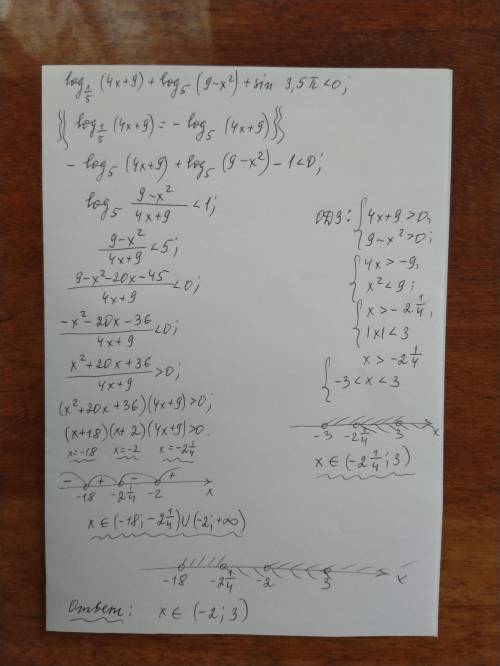 log₁/₅ (4x+9) + log₅ (9-x²) + sin 3,5π < 0;
{{ log₁/₅ (4x+9) = -log₅ (4x+9) }}
- log₅ (4x+9) + log₅ (9-x²) - 1 < 0;
log₅ (9-x²)/(4x+9) < 1;
(9-x²)/(4x+9) < 5;
(9-x²-20x-45)/(4x+9) < 0;
(-x²-20x-36)/(4x+9) < 0;
(x²+20x+36)/(4x+9) > 0;
(x²+20x+36)(4x+9) > 0;
(x+18)(x+2)(4x+9) > 0.
x=-18 x=-2 x=-2 1/4
- + - +
-18 -2 1/4 -2 x
x ∈ (-18; -2 1/4) ∪ (-2; +∞)
ОДЗ: { 4x+9 > 0,
9-x² > 0;
{ 4x > -9,
x² < 9;
{ x > -2 1/4,
|x| < 3
{ x > -2 1/4
-3 < x < 3
-3 -2 1/4 3 x
x ∈ (-2 1/4; 3)
-18 -2 1/4 -2 3 x
Ответ: x ∈ (-2; 3)